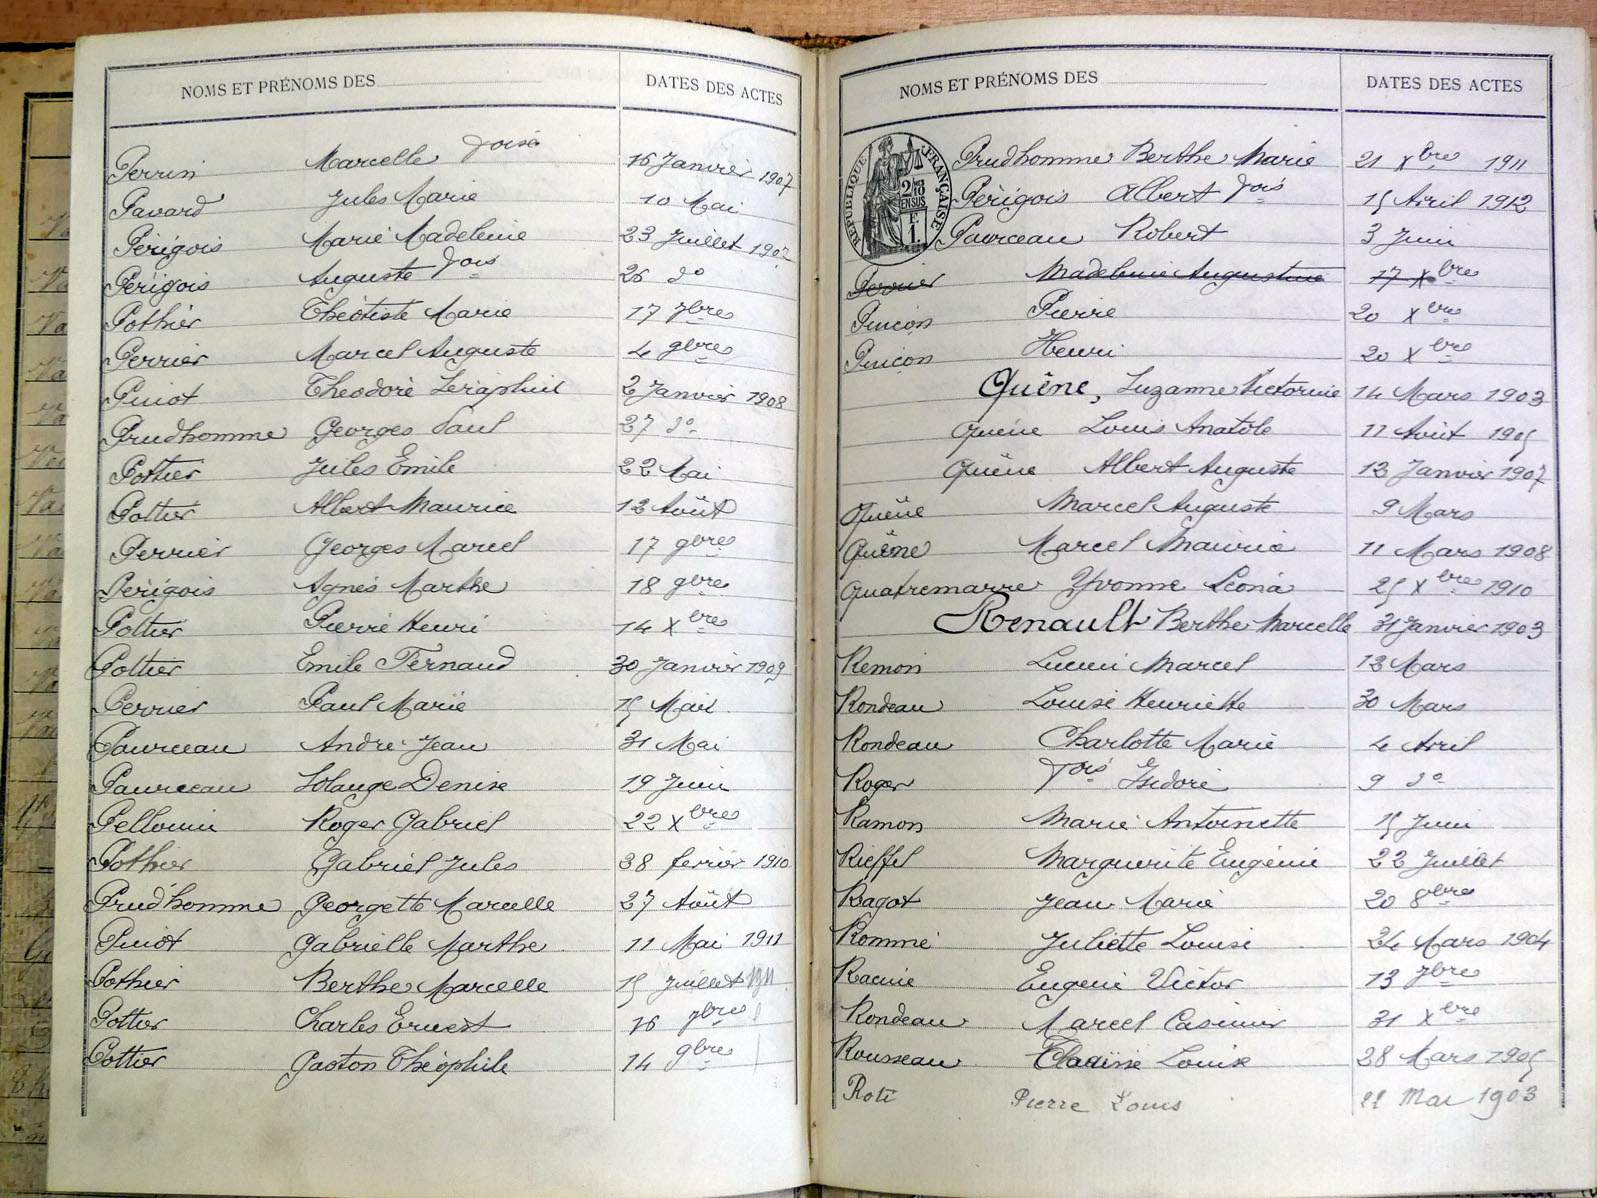 NOMS ET PRÉNOMS DES DATES DES ACTES
Perrin Marcelle Foise 16 Janvier 1907
Pavard Jules Marie 10 Mai
Périgois Marie Madeleine 23 Juillet 1907
Périgois Auguste Fois 26 do
Pothier Théotiste Marie 17 7bre
Perrier Marcel Auguste 4 9bre
Puiot Théodore Séraphin 2 Janvier 1908
Prudhomme Georges Paul 27 do
Pottier Jules Emile 22 Mai
Pottier Albert Maurice 12 Août
Perrier Georges Marcel 17 9bre
Périgois Agnès Marthe 18 9bre
Pottier Pierre Henri 14 Xbre
Pottier Emile Fernand 30 Janvier 1909
Perrier Paul Marie 15 Mai
Pourceau André Jean 31 Mai
Pourceau Solange Denise 19 Juin
Pellouin Roger Gabriel 22 Xbre
Pothier Gabriel Jules 28 février 1910
Prud'homme Georgette Marcelle 27 Août
Puiot Gabrielle Marthe 11 Mai 1911
Pothier Berthe Marcelle 15 Juillet 1911
Pottier Charles Ernest 16 7bre
Pottier Gaston Théophile 14 9bre
NOMS ET PRÉNOMS DES DATES DES ACTES
RÉPUBLIQUE FRANÇAISE
2/10 EN SUS
F. 1.
Prudhomme Berthe Marie 21 Xbre 1911
Périgois Albert Fois 15 Avril 1912
Pourceau Robert 3 Juin
Perrier Madeleine Augustine 17 Xbre
Pinçon Pierre 20 Xbre
Pinçon Henri 20 Xbre
Quêne, Suzanne Victorine 14 Mars 1903
Quêne Louis Anatole 11 Août 1905
Quêne Albert Auguste 12 Janvier 1907
Quêne Marcel Auguste 9 Mars
Quêne Marcel Maurice 11 Mars 1908
Quatremarre Yvonne Léona 25 Xbre 1910
Renault Berthe Marcelle 31 Janvier 1903
Remon Lucien Marcel 12 Mars
Rondeau Louise Henriette 30 Mars
Rondeau Charlotte Marie 4 Avril
Roger Fois Isidore 9 do
Ramon Marie Antoinette 15 Juin
Rieffel Marguerite Eugénie 22 Juillet
Ragot Jean Marie 20 8bre
Rommé Juliette Louise 24 Mars 1904
Racine Eugène Victor 13 7bre
Rondeau Marcel Casimir 31 Xbre
Rousseau Louise 28 Mars 1905
Roti Pierre Louis 22 Mai 1903